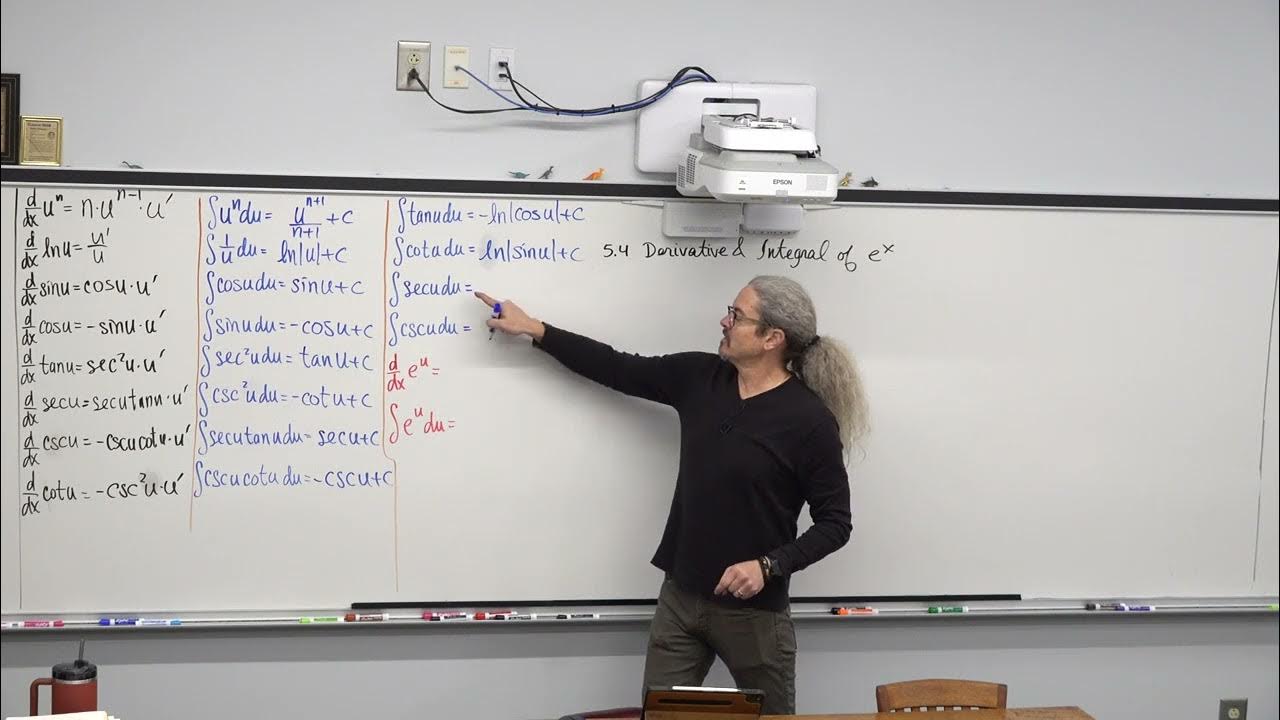 EPSON
d/dx uⁿ = n·uⁿ⁻¹·u′
d/dx ln u = u′/u
d/dx sin u = cos u · u′
d/dx cos u = -sin u · u′
d/dx tan u = sec²u · u′
d/dx sec u = sec u tan u · u′
d/dx csc u = -csc u cot u · u′
d/dx cot u = -csc²u · u′
∫uⁿdu = uⁿ⁺¹/n+1 + C
∫1/u du = ln|u| + C
∫cos u du = sin u + C
∫sin u du = -cos u + C
∫sec²u du = tan u + C
∫csc²u du = -cot u + C
∫sec u tan u du = sec u + C
∫csc u cot u du = -csc u + C
∫tan u du = -ln|cos u| + C
∫cot u du = ln|sin u| + C
∫sec u du =
∫csc u du =
d/dx eᵘ =
∫eᵘ du =
5.4 Derivative & Integral of eˣ